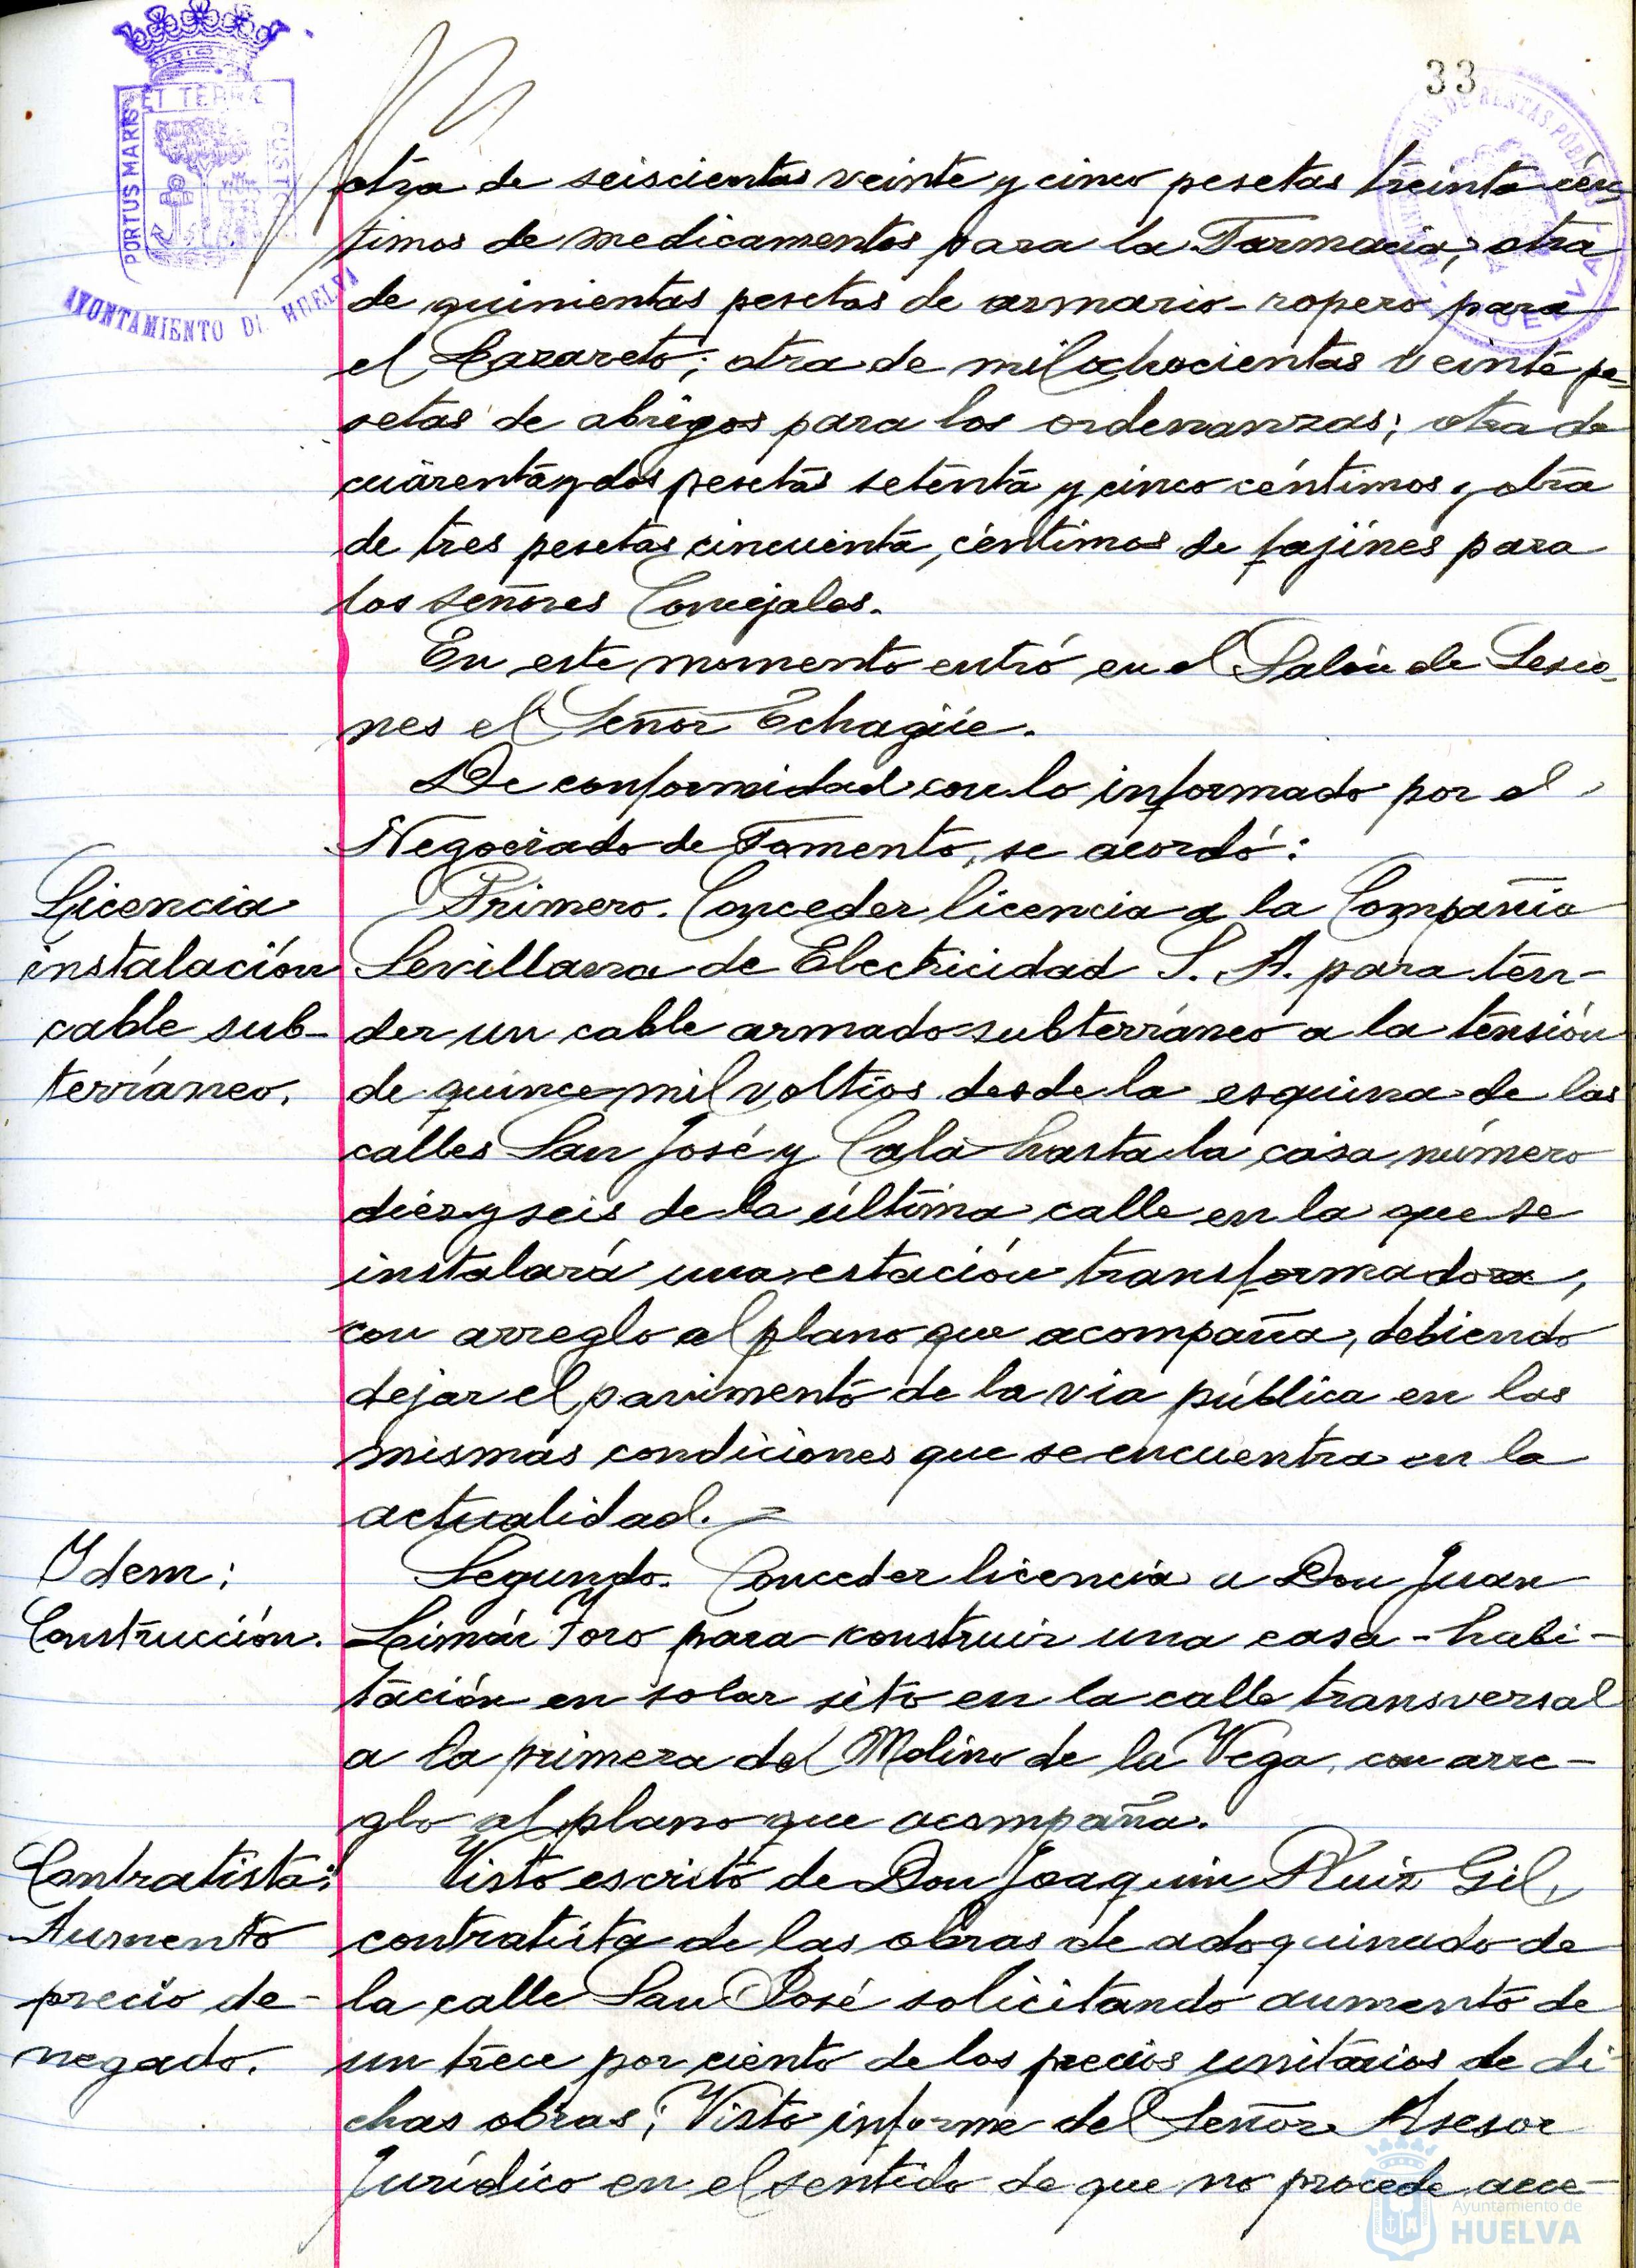 33
PORTUS MARIS
ET TERRÆ
CUSTO
AYUNTAMIENTO DE HUELVA
DE RENTAS PÚBLICAS
HUELVA
otra de seiscientas veinte y cinco pesetas treinta cén-
timos de medicamentos para la Farmacia; otra
de quinientas pesetas de armario-ropero para
el Lazareto; otra de mil ochocientas veinte pe-
setas de abrigos para los ordenanzas; otra de
cuarenta y dos pesetas setenta y cinco céntimos y otra
de tres pesetas cincuenta céntimos de fajines para
los señores Concejales.
En este momento entró en el Salón de Sesio-
nes el Señor Echagüe.
De conformidad con lo informado por el
Negociado de Fomento, se acordó:
Licencia
instalación
cable sub-
terráneo.
Primero. Conceder licencia a la Compañia
Sevillana de Electricidad S. A. para ten-
der un cable armado subterráneo a la tensión
de quince mil voltios desde la esquina de las
calles San José y Cala hasta la casa número
diez y seis de la última calle en la que se
instalará una estación transformadora,
con arreglo al plano que acompaña, debiendo
dejar el pavimento de la via pública en las
mismas condiciones que se encuentra en la
actualidad.=
Idem:
Construcción.
Segundo. Conceder licencia a Don Juan
Limón Toro para construir una casa-habi-
tación en solar sito en la calle transversal
a la primera del Molino de la Vega, con arre-
glo al plano que acompaña.
Contratista:
Aumento
precio de-
negado.
Visto escrito de Don Joaquin Ruiz Gil,
contratista de las obras de adoquinado de
la calle San José solicitando aumento de
un trece por ciento de los precios unitarios de di-
chas obras; Visto informe del Señor Asesor
Jurídico en el sentido de que no procede acce-
Ayuntamiento de
HUELVA